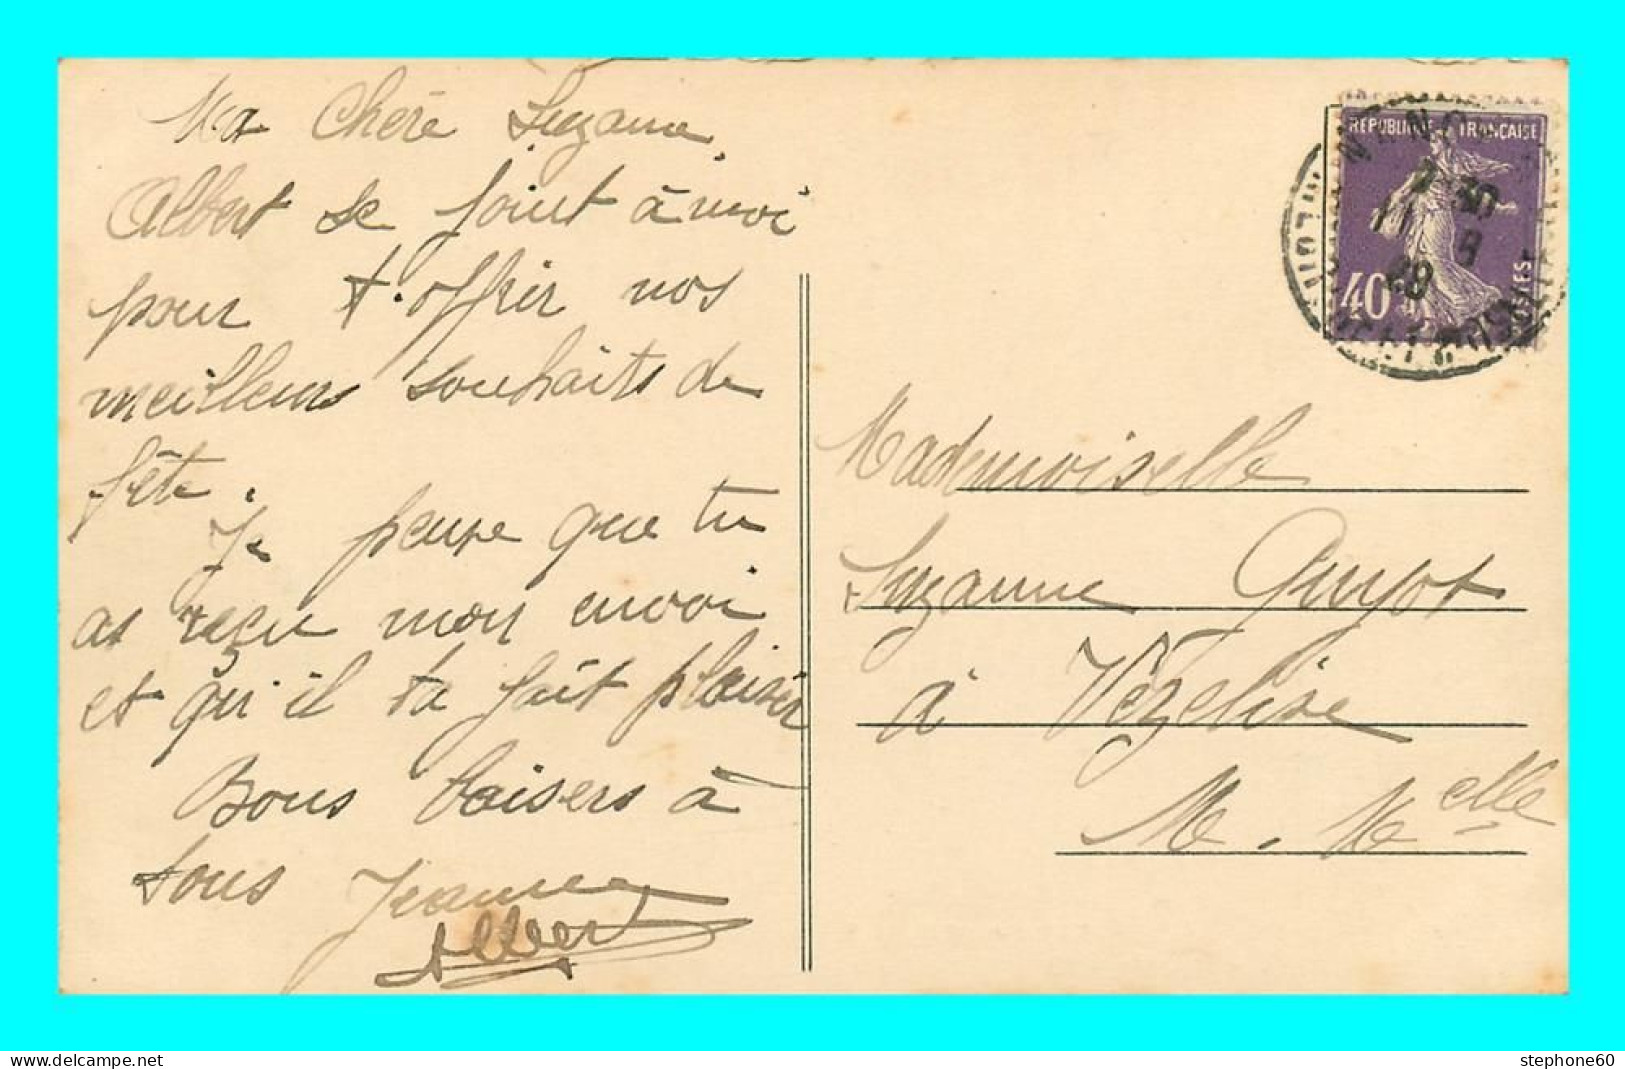 Ma Chère Suzanne,
Albert se joint à moi
pour t'offrir nos
meilleurs souhaits de
fête.
Je pense que tu
as reçu mon envoi
et qu'il ta fait plaisir
Bons baisers à
tous Jeanne
Albert
REPUBLIQUE FRANCAISE
40
POSTES
NANCY
7 30
11 8
Mademoiselle
Suzanne Guyot
à Vézelise
M. Melle
stephone60